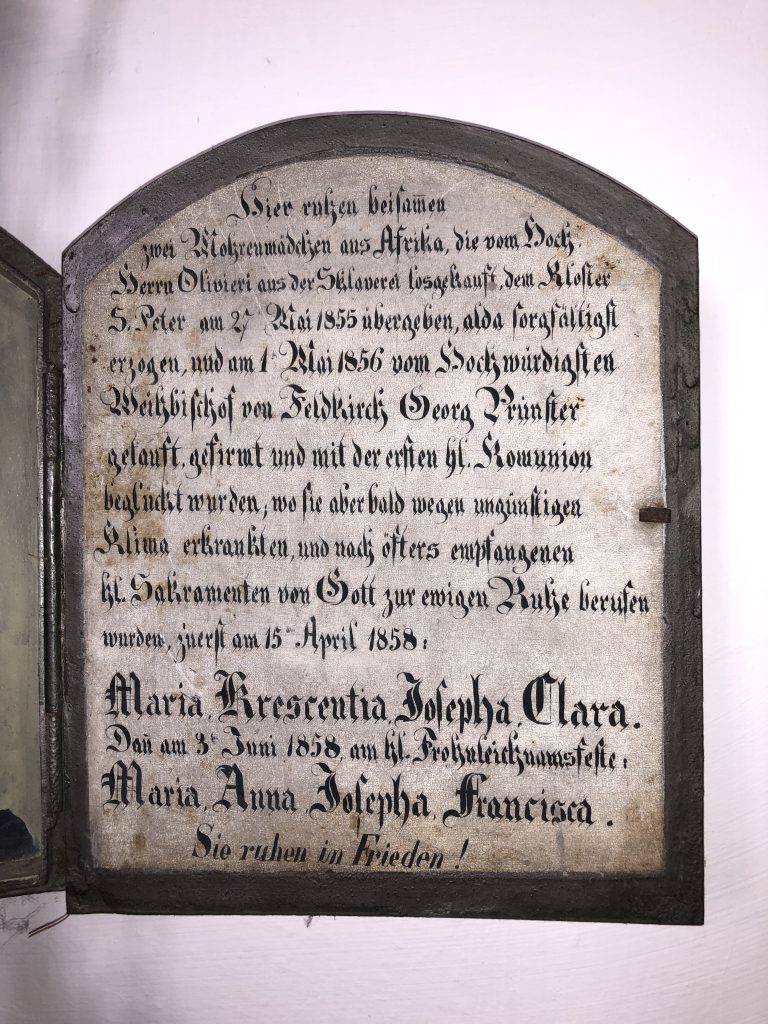 Hier ruhen beisam̅en
zwei Mohrenmädchen aus Afrika, die vom Hoch.
Herrn Olivieri aus der Sklaverei losgekauft, dem Kloster
S. Peter am 27 Mai 1855 übergeben, alda sorgfältigst
erzogen, und am 1t Mai 1856 vom Hochwürdigsten
Weihbischof von Feldkirch Georg Prünster
getauft, gefirmt und mit der ersten hl. Komunion
beglückt wurden, wo sie aber bald wegen ungünstigen
Klima erkrankten, und nach öfters empfangenen
hl. Sakramenten von Gott zur ewigen Ruhe berufen
wurden, zuerst am 15t April 1858:
Maria, Krescentia, Josepha, Clara.
Dan̅ am 3t Juni 1858, am hl. Frohnleichnamsfeste:
Maria, Anna, Josepha, Francisca.
Sie ruhen in Frieden!